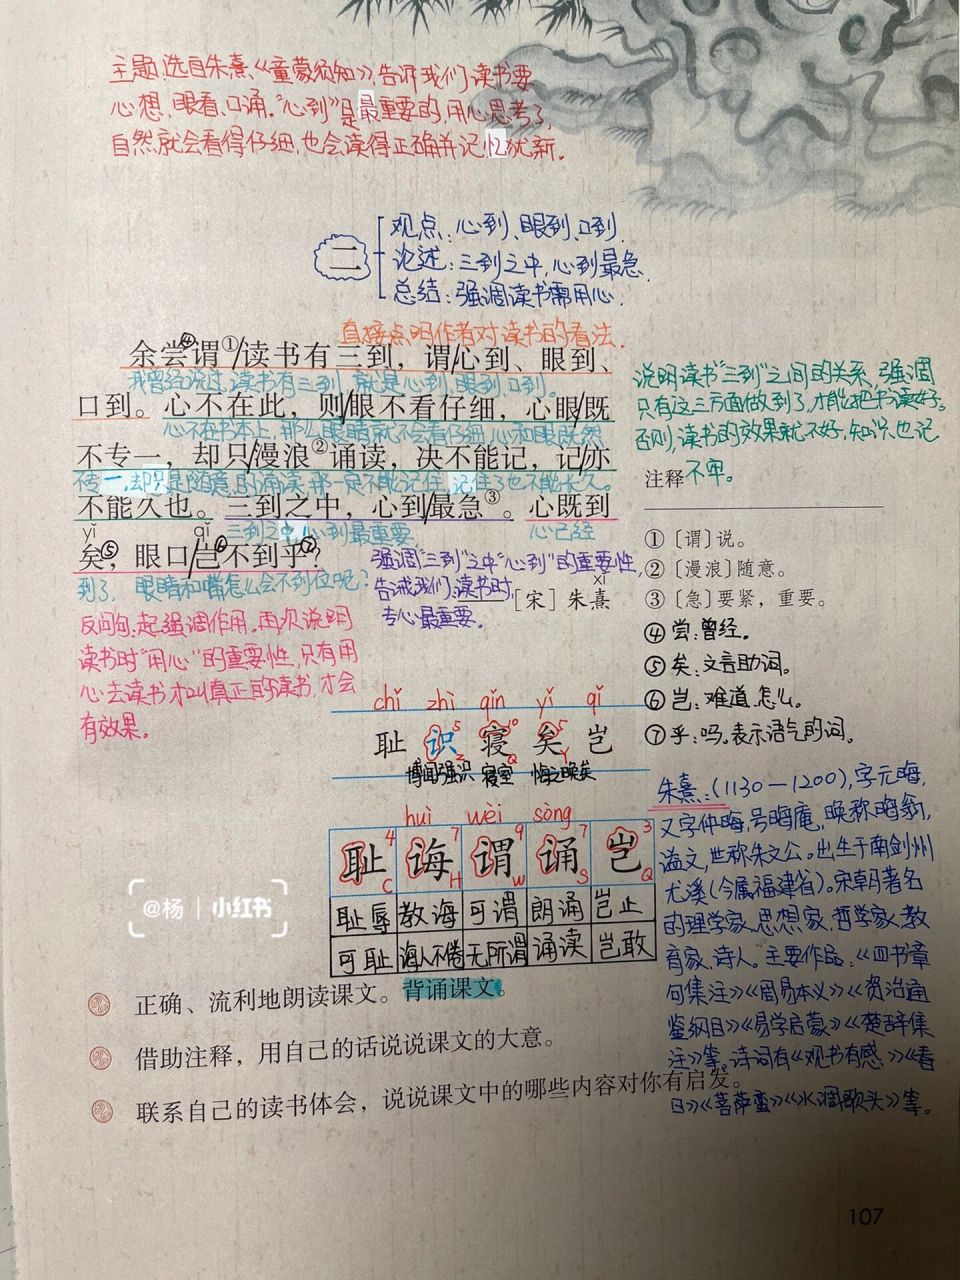 主题:选自朱熹《童蒙须知》,告诉我们读书要
心想、眼看、口诵。"心到"是最重要的,用心思考了,
自然就会看得仔细,也会读得正确并记忆犹新。
二
观点:心到、眼到、口到.
论述:三到之中,心到最急.
总结:强调读书需用心.
直接点明作者对读书的看法.
余尝④谓①/读书有三到,谓/心到、眼到、
我曾经说过,读书有三到,就是心到,眼到,口到。
口到。心不在此,则/眼不看仔细,心眼/既
心不在书本上,那么眼睛就不会看仔细,心和眼既然
不专一,却只/漫浪②诵读,决不能记,记/亦
不专一,却只是随意的诵读,那一定不能记住,记住了也不能长久。
不能久也。三到之中,心到/最急③。心既到
三到之中,心到最重要. 心已经
yǐ qǐ
矣⑤,眼口/岂⑥不到乎⑦?
到了,眼睛和嘴怎么会不到位呢?
强调"三到"之中"心到"的重要性,
告诫我们:读书时,
专心最重要。
xī
[宋]朱熹
反问句:起强调作用。再次说明
读书时"用心"的重要性,只有用
心去读书才叫真正的读书,才会
有效果。
说明读书"三到"之间的关系,强调
只有这三方面做到了,才能把书读好。
否则,读书的效果就不好,知识也记
不牢。
注释
①〔谓〕说。
②〔漫浪〕随意。
③〔急〕要紧,重要。
④尝:曾经。
⑤矣:文言助词。
⑥岂:难道.怎么.
⑦乎:吗。表示语气的词。
chǐ zhì qǐn yǐ qǐ
耻 识 寝 矣 岂
5 10 5
Z Q Y
博闻强识 寝室 悔之晚矣
huì wèi sòng
4 7 9 7 3
耻 诲 谓 诵 岂
C H W S Q
耻辱 教诲 可谓 朗诵 岂止
可耻 诲人不倦 无所谓 诵读 岂敢
朱熹:(1130—1200),字元晦,
又字仲晦,号晦庵,晚称晦翁,
谥文,世称朱文公。出生于南剑州
尤溪(今属福建省)。宋朝著名
的理学家、思想家、哲学家、教
育家、诗人。主要作品:《四书章
句集注》《周易本义》《资治通
鉴纲目》《易学启蒙》《楚辞集
注》等。诗词有《观书有感》《春
日》《菩萨蛮》《水调歌头》等。
@杨 | 小红书
正确、流利地朗读课文。背诵课文。
借助注释,用自己的话说说课文的大意。
联系自己的读书体会,说说课文中的哪些内容对你有启发。
107